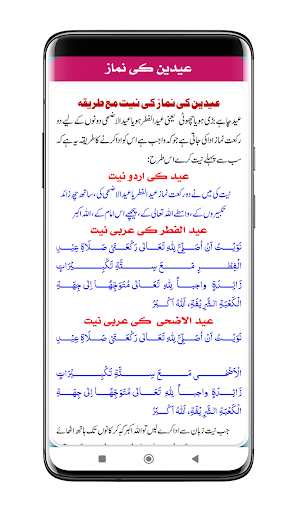 عیدین کی نماز
عیدین کی نماز کی نیت مع طریقہ
عید چاہے بڑی ہو یا چھوٹی یعنی عید الفطر ہو یا عید الاضحی دونوں کے لیے دو
رکعت نماز ادا کی جاتی ہے جو کہ واجب ہے اس کو ادا کرنے کا طریقہ یہ ہے کہ
سب سے پہلے نیت کرے اس طرح:
عید کی اردو نیت
نیت کی میں نے دو رکعت نماز عید الفطر یا عید الاضحی کی، ساتھ چھ زائد
تکبیروں کے، واسطے اللہ تعالی کے، پیچھے اس امام کے، اللہ اکبر
عید الفطر کی عربی نیت
نَوَيْتُ اَنْ اُصَلِّيَ لِلّٰهِ تَعَالٰى رَكْعَتَيْ صَلَاةِ عِيْدِ
الْفِطْرِ مَعَ سِتَّةِ تَكْبِيْرَاتٍ
زَائِدَةٍ وَاجِباً لِلّٰهِ تَعَالٰى مُتَوَجِّهًا اِلٰى جِهَةِ
الْكَعْبَةِ الشَّرِيْفَةِ، اَللّٰهُ اَكْبَرُ
عید الاضحی کی عربی نیت
نَوَيْتُ اَنْ اُصَلِّيَ لِلّٰهِ تَعَالٰى رَكْعَتَيْ صَلَاةِ عِيْدِ
الْاَضْحٰى مَعَ سِتَّةِ تَكْبِيْرَاتٍ
زَائِدَةٍ وَاجِباً لِلّٰهِ تَعَالٰى مُتَوَجِّهًا اِلٰى جِهَةِ
الْكَعْبَةِ الشَّرِيْفَةِ، اَللّٰهُ اَكْبَرُ
جب نیت زبان سے ادا کرے لیں تو اللہ اکبر کہہ کر کانوں تک ہاتھ اٹھائے